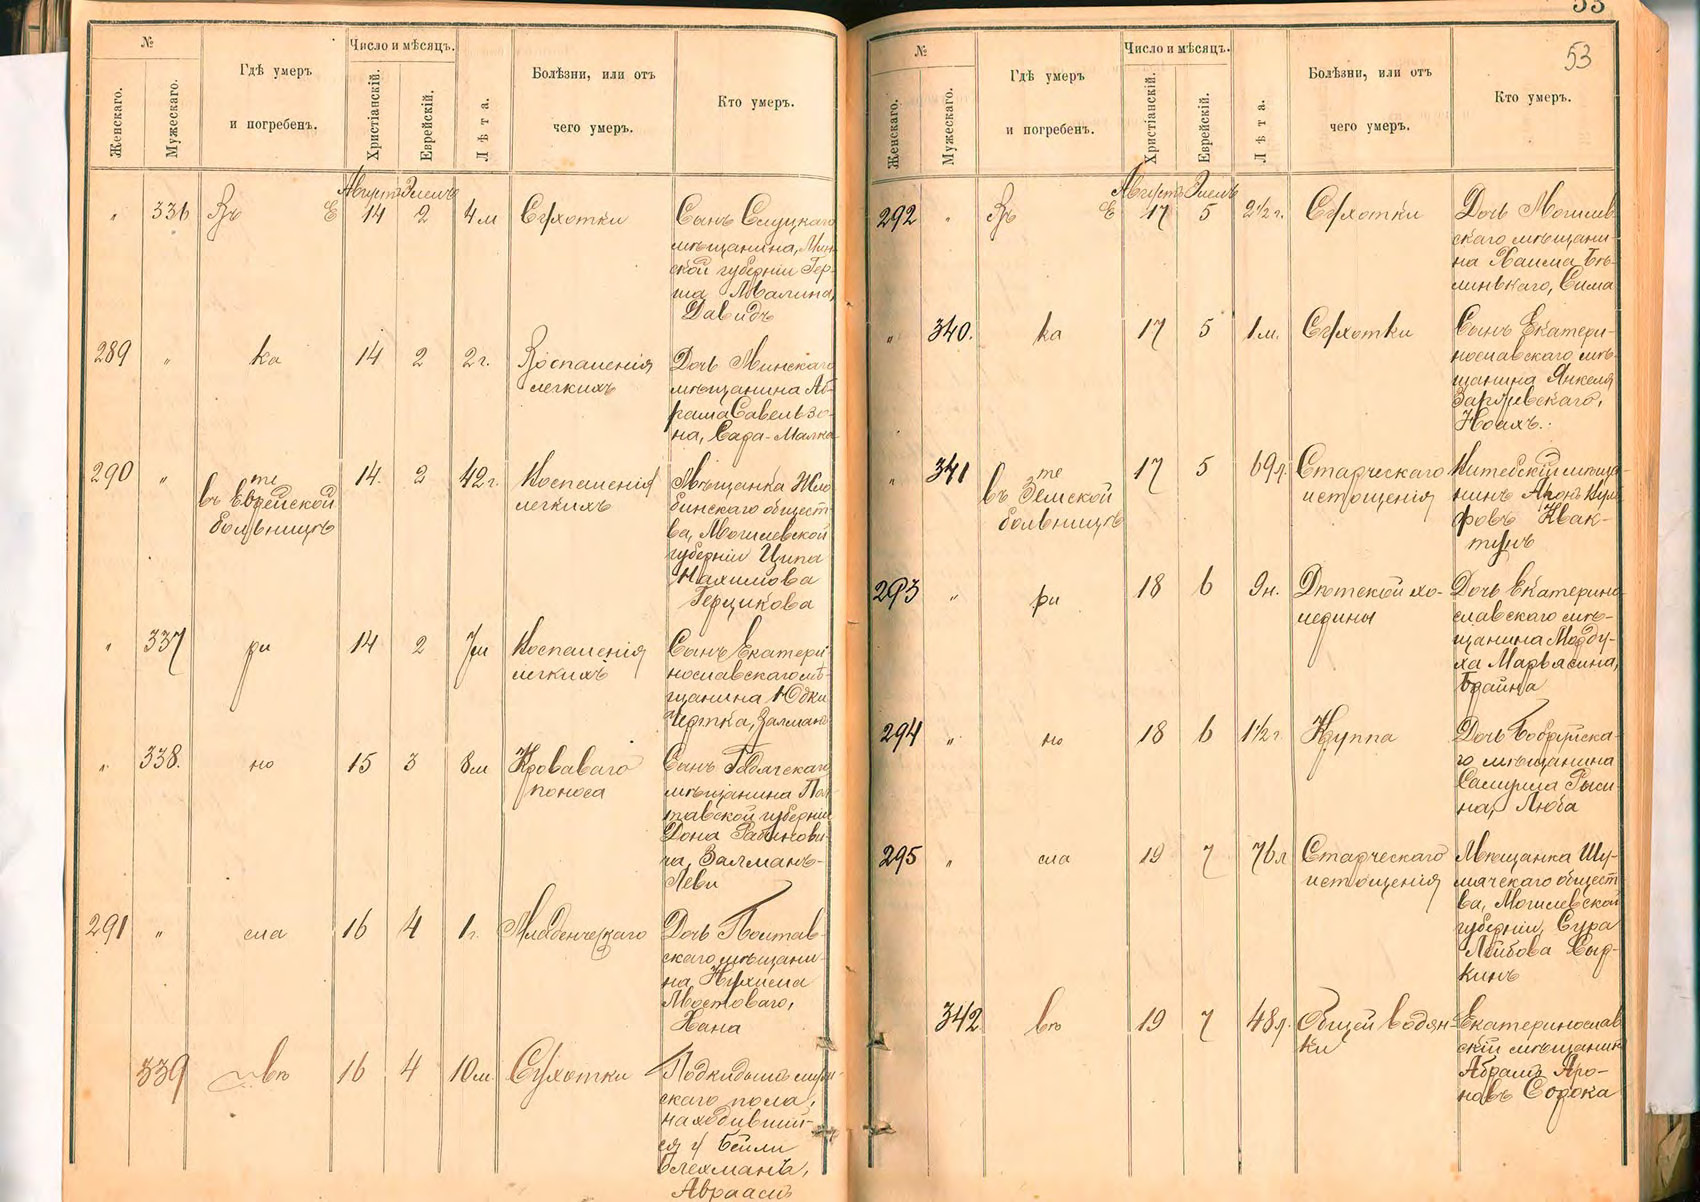 №
Женскаго.
Мужескаго.
Гдѣ умеръ
и погребенъ.
Число и мѣсяцъ.
Христіанскій.
Еврейскій.
Лѣта.
Болѣзни, или отъ
чего умеръ.
Кто умеръ.
Августъ Элелъ
" 336 Въ Е 14 2 4м Сухотки
Сынъ Слуцкаго
мѣщанина, Мин-
ской губерніи Гер-
ша Малина,
Давидъ
289 " ка 14 2 2г. Воспаленія
легкихъ
Дочь Минскаго
мѣщанина Аб-
рама Савельзо-
на, Сара-Малка
290 " те 14. 2 42г. Воспаленія
въ Еврейской
больницѣ
легкихъ
Мѣщанка Жло-
бинскаго общест-
ва, Могилевской
губерніи Ципа
Нахимова
Герцикова
" 337 ри 14 2 7м Воспаленія
легкихъ
Сынъ Екатери-
нославскаго мѣ-
щанина Юдки
Чертка, Залманъ
" 338. но 15 3 8м Кроваваго
поноса
Сынъ Гадячскаго
мѣщанина Пол-
тавской губерніи
Дона Рабинови-
ча, Залманъ-
Леви
291 " сла 16 4 1г. Младенческаго
Дочь Полтав-
скаго мѣщани-
на Нухима
Мостоваго,
Хана
339 вѣ 16 4 10м. Сухотки
Подкидышъ муж-
скаго пола,
находившій-
ся у Бейли
Блехманъ,
Авраамъ
53
53
№
Женскаго.
Мужескаго.
Гдѣ умеръ
и погребенъ.
Число и мѣсяцъ.
Христіанскій.
Еврейскій.
Лѣта.
Болѣзни, или отъ
чего умеръ.
Кто умеръ.
Августъ Элелъ
292 " Въ Е 17 5 2½г. Сухотки
Дочь Могилев-
скаго мѣщани-
на Хаима Бѣ-
линькаго, Сима
" 340. ка 17 5 1м. Сухотки
Сынъ Екатери-
нославскаго мѣ-
щанина Янкеля
Заруевскаго,
Ноахъ.
" 341 те 17 5 69л. Старческаго
въ Земской
больницѣ
истощенія
Витебскій мѣща-
нинъ Аронъ
Квак-
тунъ
293 " ри 18 6 9н. Дѣтской хо-
лерины
Дочь Екатерино-
славскаго мѣ-
щанина Морду-
ха Марьясина,
Брайна
294 " но 18 6 1½г Круппа
Дочь Бобруйска-
го мѣщанина
Самуила Рыси-
на, Люба
295 " сла 19 7 76л Старческаго
истощенія
Мѣщанка Шу-
мячскаго общест-
ва, Могилевской
губерніи, Сура
Лейбова Сыр-
кинъ
342 вѣ 19 7 48л. Общей водян-
ки
Екатеринослав-
скій мѣщанинъ
Абрамъ Аро-
новъ Сорока